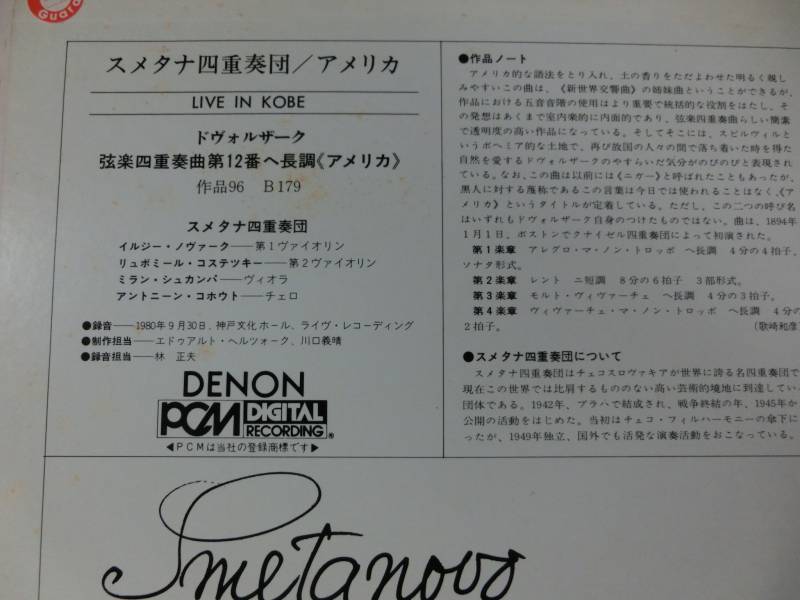 Guara
スメタナ四重奏団／アメリカ
LIVE IN KOBE
ドヴォルザーク
弦楽四重奏曲第12番ヘ長調《アメリカ》
作品96　B179
スメタナ四重奏団
イルジー・ノヴァーク──第1ヴァイオリン
リュボミール・コステツキー──第2ヴァイオリン
ミラン・シュカンパ──ヴィオラ
アントニーン・コホウト──チェロ
●録音──1980年9月30日、神戸文化ホール、ライヴ・レコーディング
●制作担当──エドゥアルト・ヘルツォーク、川口義晴
●録音担当──林　正夫
DENON
PCM DIGITAL RECORDING®
◀PCMは当社の登録商標です▶
●作品ノート
アメリカ的な語法をとり入れ、土の香りをただよわせた明るく親し
みやすいこの曲は、《新世界交響曲》の姉妹曲ということができるが、
作品における五音音階の使用はより重要で統括的な役割をはたし、そ
の発想はあくまで室内楽的に内面的であり、弦楽四重奏曲らしい簡素
で透明度の高い作品になっている。そしてそこには、スピルヴィルと
いうボヘミア的な土地で、再び故国の人々の間で落ち着いた時を得た
自然を愛するドヴォルザークのやすらいだ気分がのびのびと表現され
ている。なお、この曲は以前には《ニガー》と呼ばれたこともあったが、
黒人に対する蔑称であるこの言葉は今日では使われることはなく、《ア
メリカ》というタイトルが定着している。ただし、この二つの呼び名
はいずれもドヴォルザーク自身のつけたものではない。曲は、1894年
1月1日、ボストンでクナイゼル四重奏団によって初演された。
第1楽章　アレグロ・マ・ノン・トロッポ　ヘ長調　4分の4拍子、
ソナタ形式。
第2楽章　レント　ニ短調　8分の6拍子　3部形式。
第3楽章　モルト・ヴィヴァーチェ　ヘ長調　4分の3拍子。
第4楽章　ヴィヴァーチェ・マ・ノン・トロッポ　ヘ長調　4分の
2拍子。　（歌崎和彦
●スメタナ四重奏団について
スメタナ四重奏団はチェコスロヴァキアが世界に誇る名四重奏団で
現在この世界では比肩するもののない高い芸術的境地に到達してい
団体である。1942年、プラハで結成され、戦争終結の年、1945年か
公開の活動をはじめた。当初はチェコ・フィルハーモニーの傘下に
ったが、1949年独立、国外でも活発な演奏活動をおこなっている。
Smetanovo